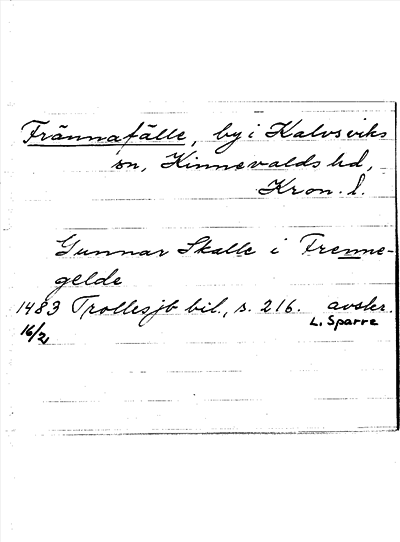 Frännafälle, by i Kalvsviks
sn, Kinnevalds hd,
Kron. l.
Gunnar Skalle i Frenne-
gelde
1483 Trollesjb bil., s. 216. avskr.
16/2 L. Sparre